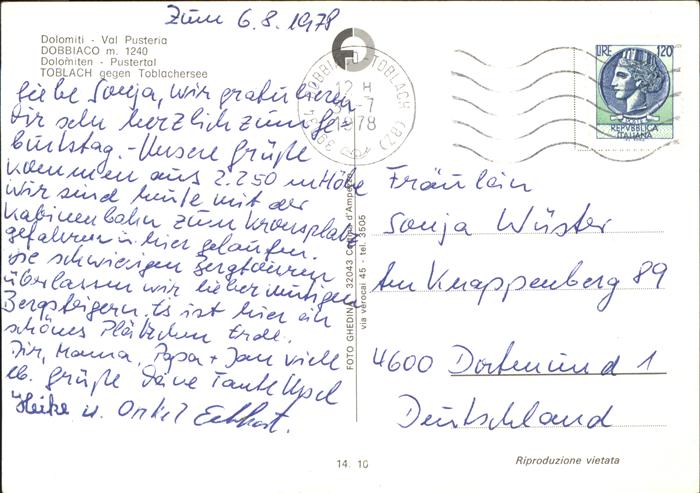 Zum 6.8.1978
Dolomiti - Val Pusteria
DOBBIACO m. 1240
Dolomiten - Pustertal
TOBLACH gegen Toblachersee
DOBBIACO-TOBLACH (BZ)
12 H
-7
1978
LIRE 120
REPVBBLICA
ITALIANA
Liebe Sonja, wir gratulieren
Dir sehr herzlich zum Ge
burtstag. - Unsere Grüße
kommen aus 2.250 m Höhe
Wir sind heute mit der
Kabinenbahn zum Kronsplatz
gefahren u. hier gelaufen.
Die schwierigen Bergtouren
überlassen wir lieber mutigen
Bergsteigern. Es ist hier ein
schönes Plätzchen Erde.
Dir, Mama, Papa + Jan viele
lb. Grüße Deine Tante Ursel
Heike u. Onkel Eckhart.
Fräulein
Sonja Wüster
Am Knappenberg 89
4600 Dortmund 1
Deutschland
FOTO GHEDINA - 32043 Cortina d'Ampezzo
via verocai 45 - tel. 3505
14. 10
Riproduzione vietata